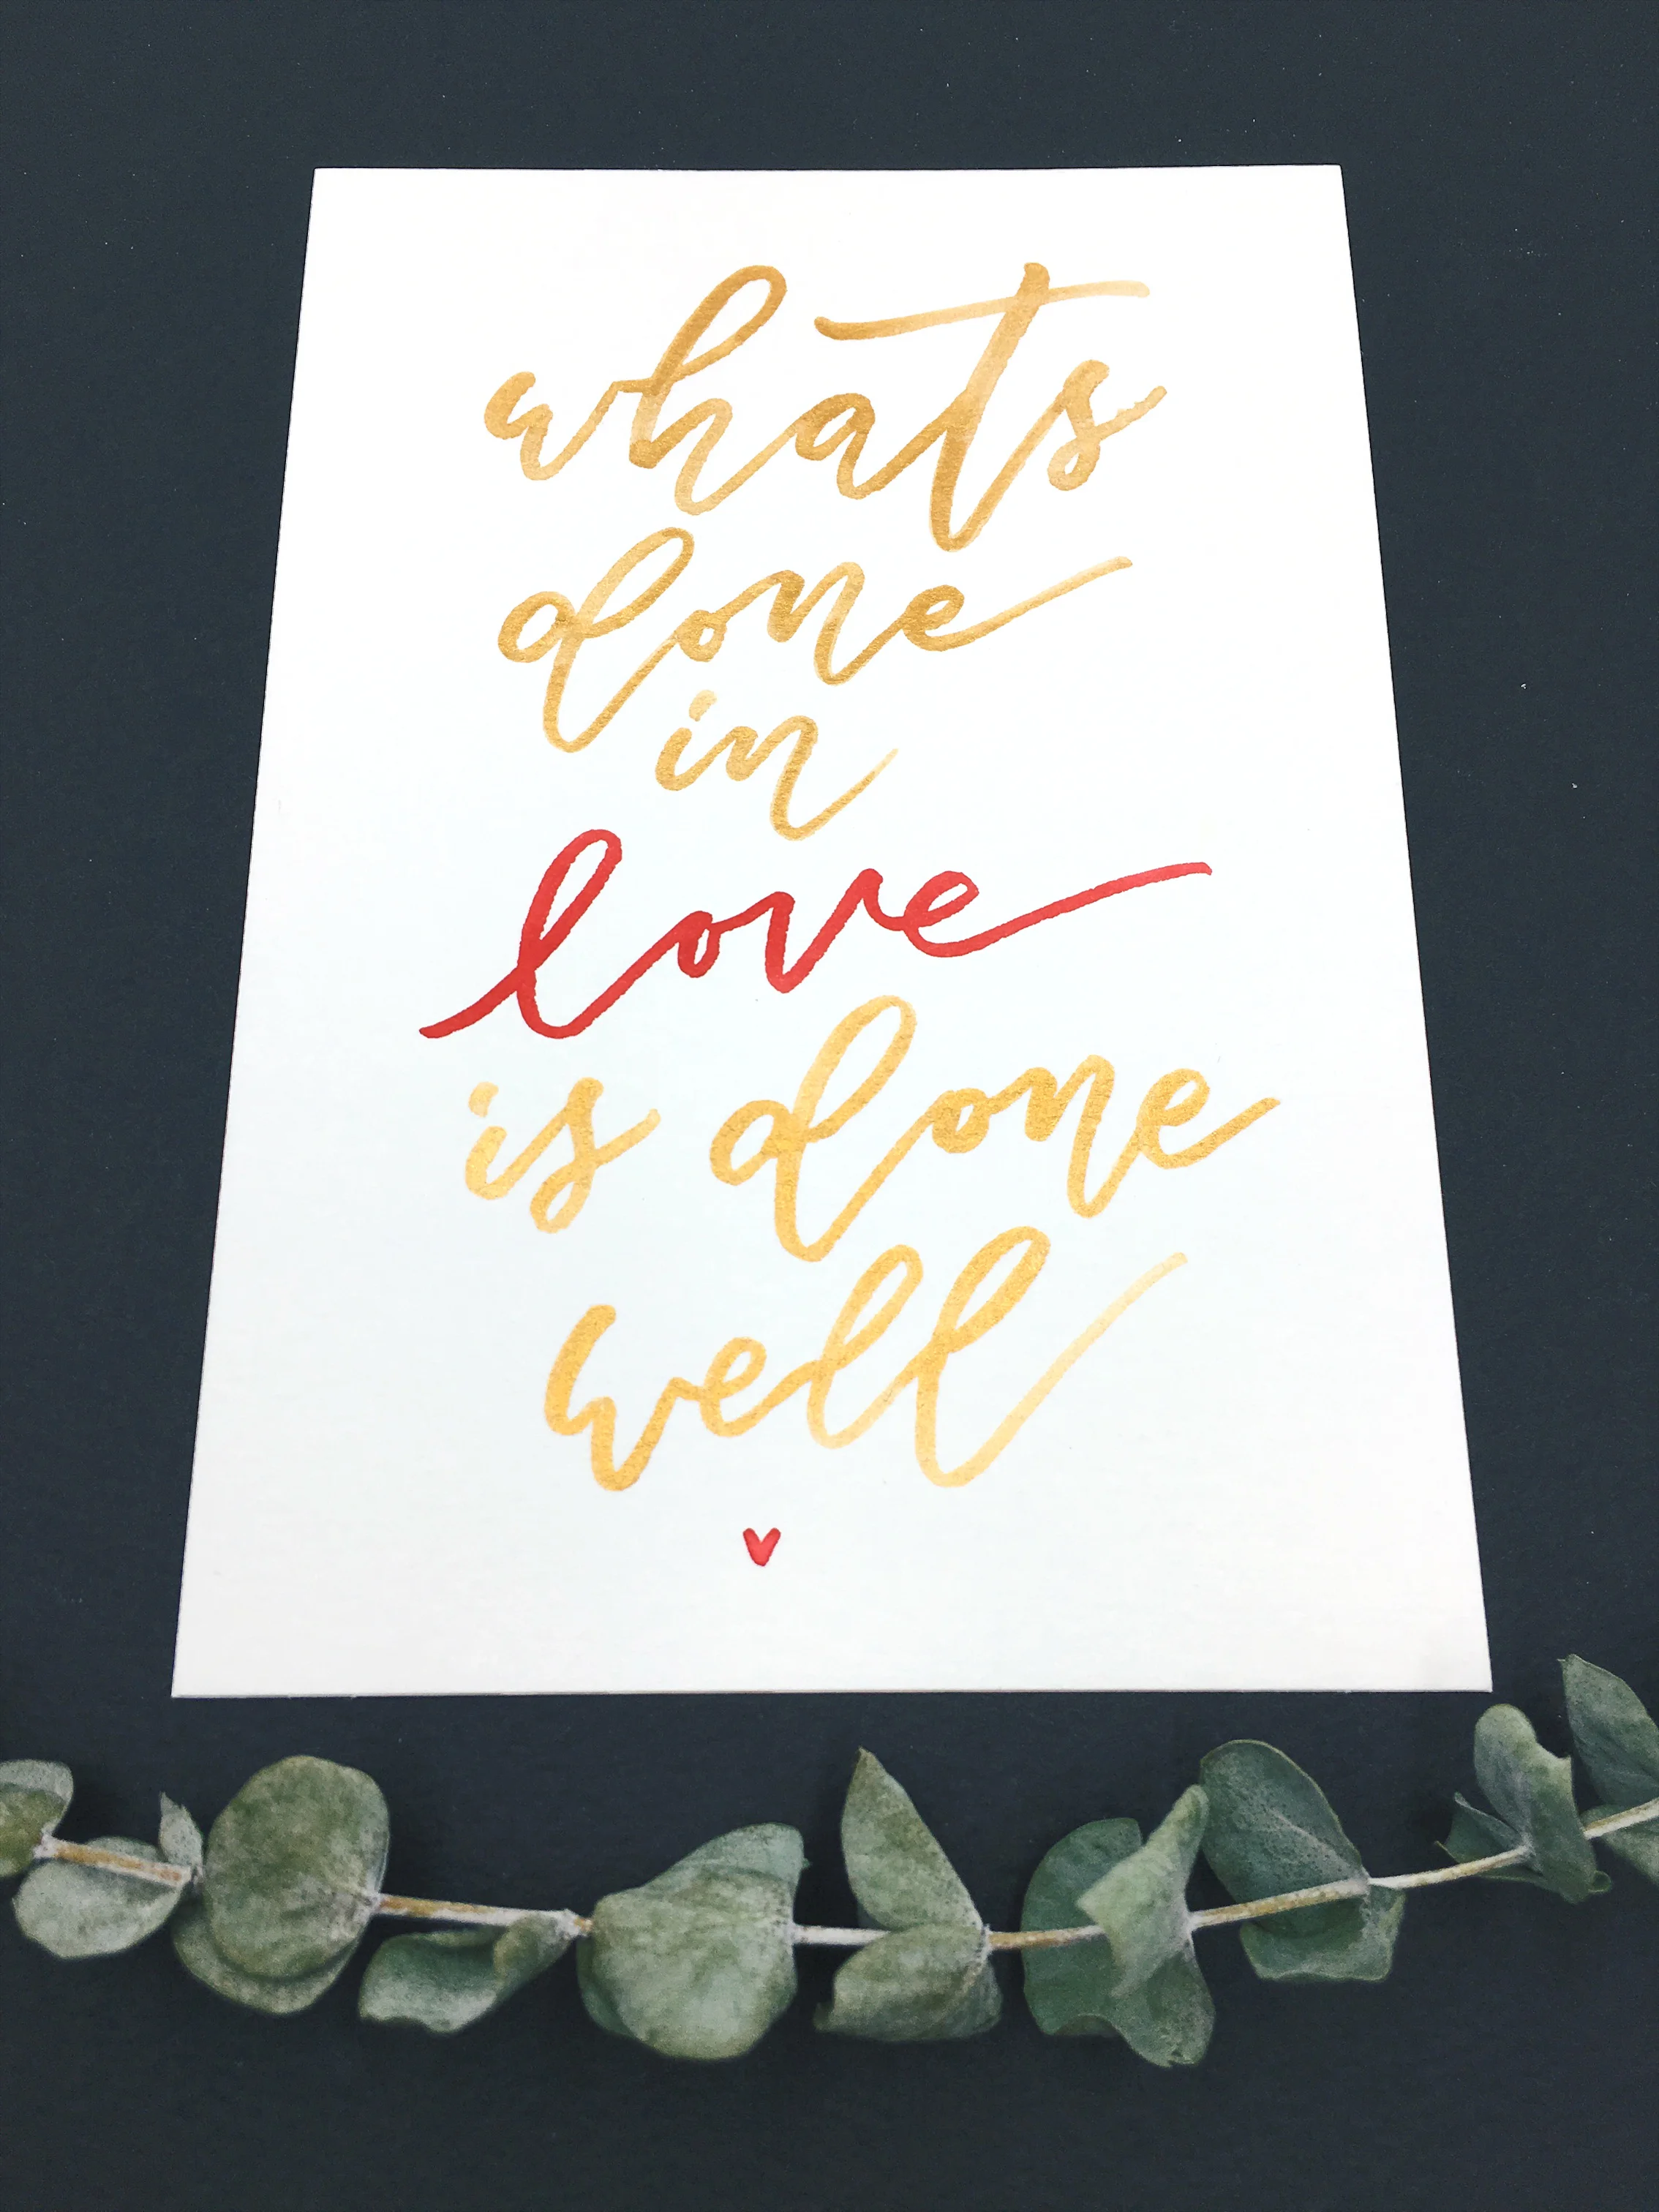 whats
done
in
love
is done
well